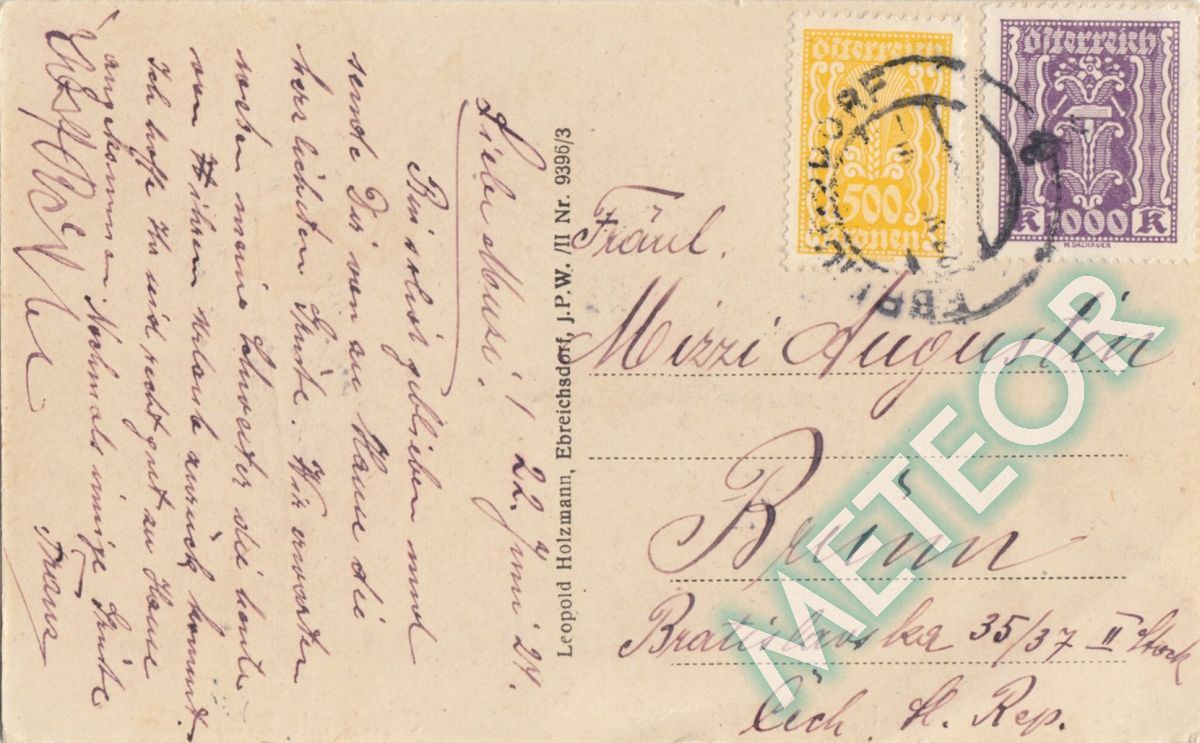 Liebe Musi! 22. Juni 24.
Bin solid geblieben und
sende Dir von zu Hause die
herzlichsten Grüße. Wir erwarten
meine Schwester die heute
vom Urlaub zurück kommt.
Ich hoffe Ihr seid recht gut zu Hause
angekommen. Nochmals innige Grüße
Franz
Leopold Holzmann, Ebreichsdorf, j.P.W. /II Nr. 9396/3
Österreich
500
Kronen
Österreich
K 1000 K
W.DACHAUER
Fräul.
Mizzi Augustin
Brünn
Bratislavska 35/37 II Stock
Čech. Sl. Rep.
METEOR